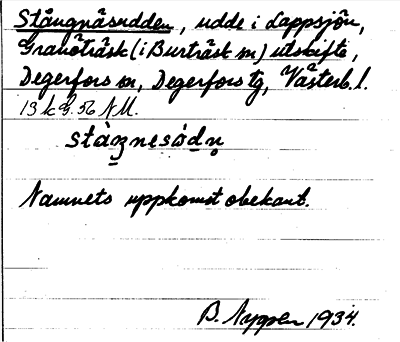 Stångnäsudden, udde i Lappsjön,
Granöträsk (i Burträsk sn) utskifte,
Degerfors sn, Degerfors tg, Västerb. l.
13 k g. 56 NM.
stàꞑnesód̲n̥
Namnets uppkomst obekant.
B. Nygren 1934.